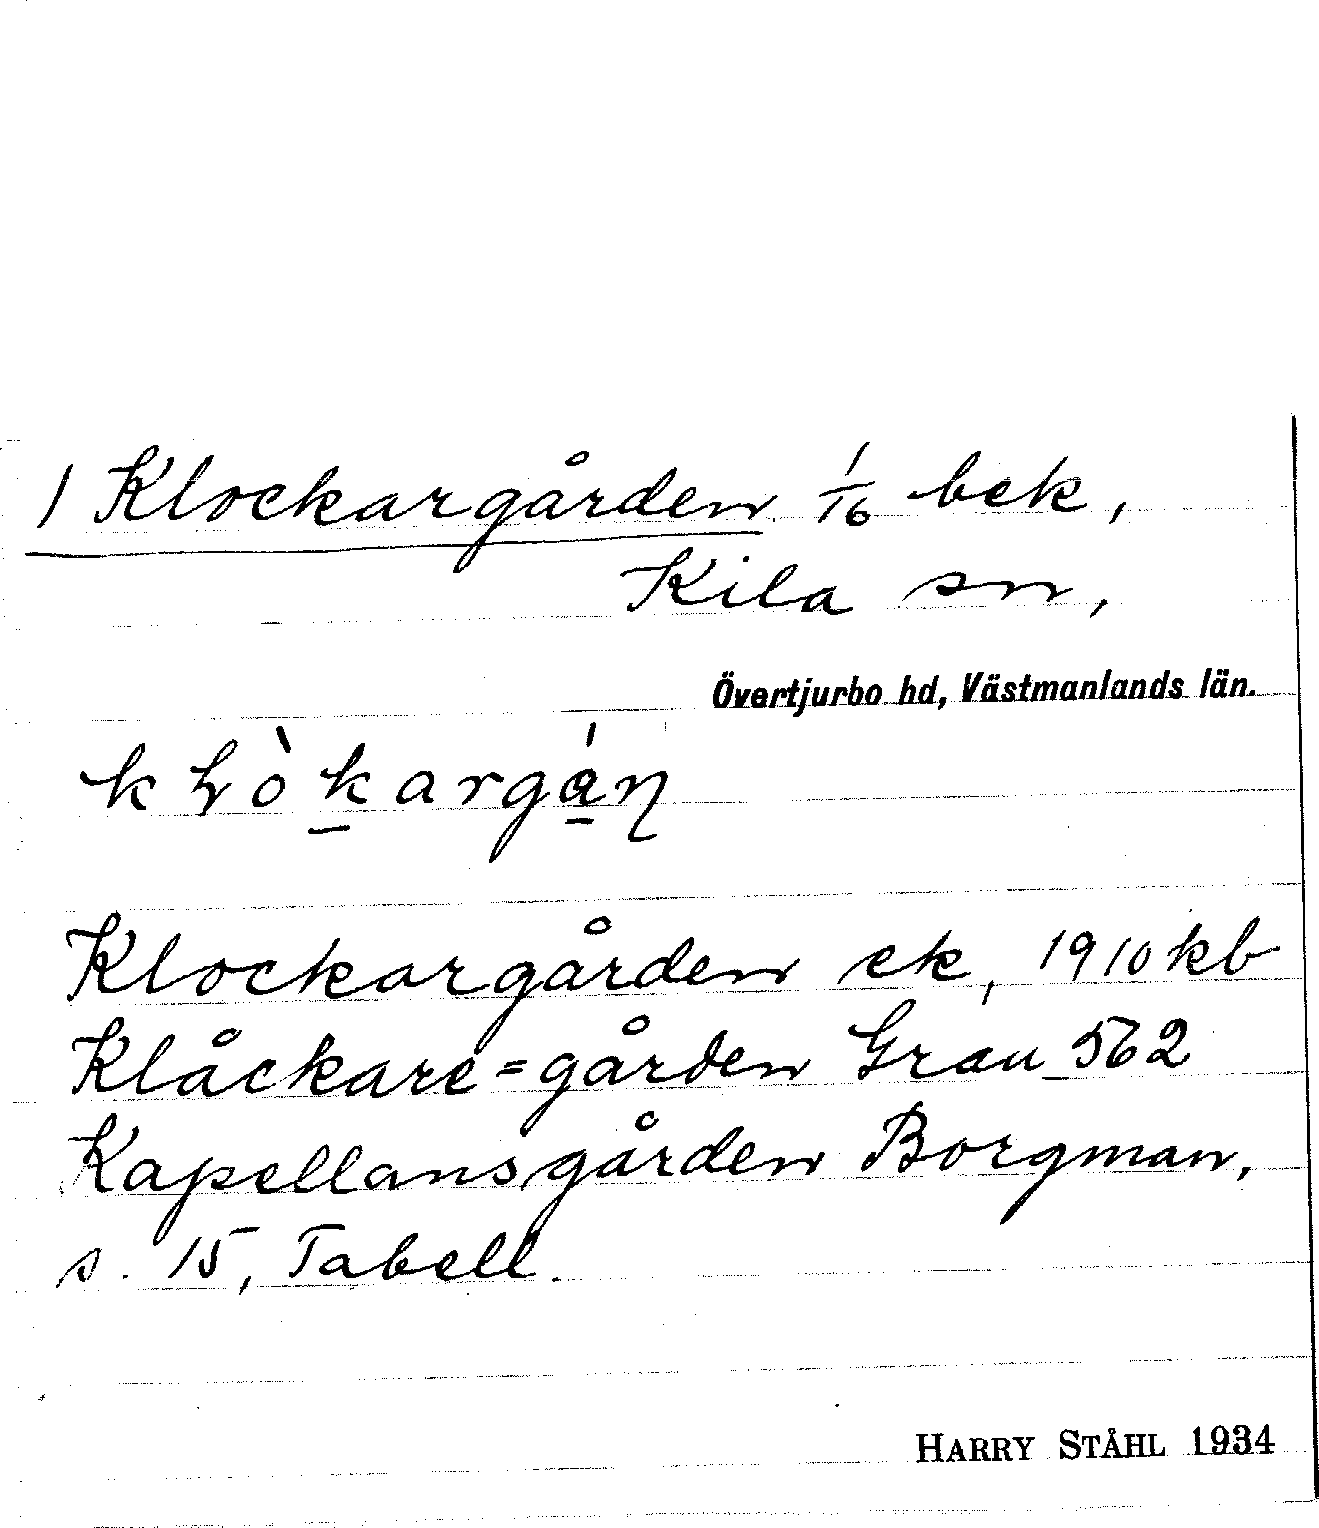 1 Klockargården 1/16 bek,
Kila sn,
Övertjurbo hd, Västmanlands län.
Klockargården ek, 1910 kb
Klåckare=gården Grau 562
Kapellansgården Borgman,
s. 15, Tabell.
HARRY STÅHL 1934